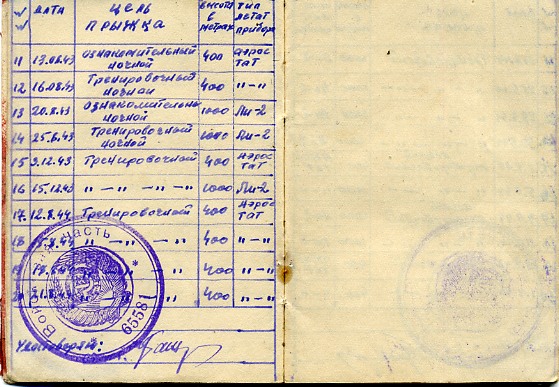 №№ ДАТА ЦЕЛЬ ПРЫЖКА ВЫСОТА В МЕТРАХ ТИП ЛЕТАТ ПРИБОРА
11 13.08.43 ОЗНАКОМИТЕЛЬНЫЙ НОЧНОЙ 400 АЭРОСТАТ
12 16.08.43 Тренировочный ночной 400 "—"
13 20.8.43 ОЗНАКОМИТЕЛЬНЫЙ НОЧНОЙ 1000 Ли-2
14 25.8.43 Тренировочный ночной 1000 Ли-2
15 9.12.43 Тренировочный 400 АЭРОСТАТ
16 15.12.43 "—" "—" 1000 Ли-2
17 12.8.44 Тренировочной 400 АЭРОСТАТ
18 "—" "—" 400 "—"
"—" "—" 400 "—"
"—" 400 "—"
часть
65581
Удостоверяю: